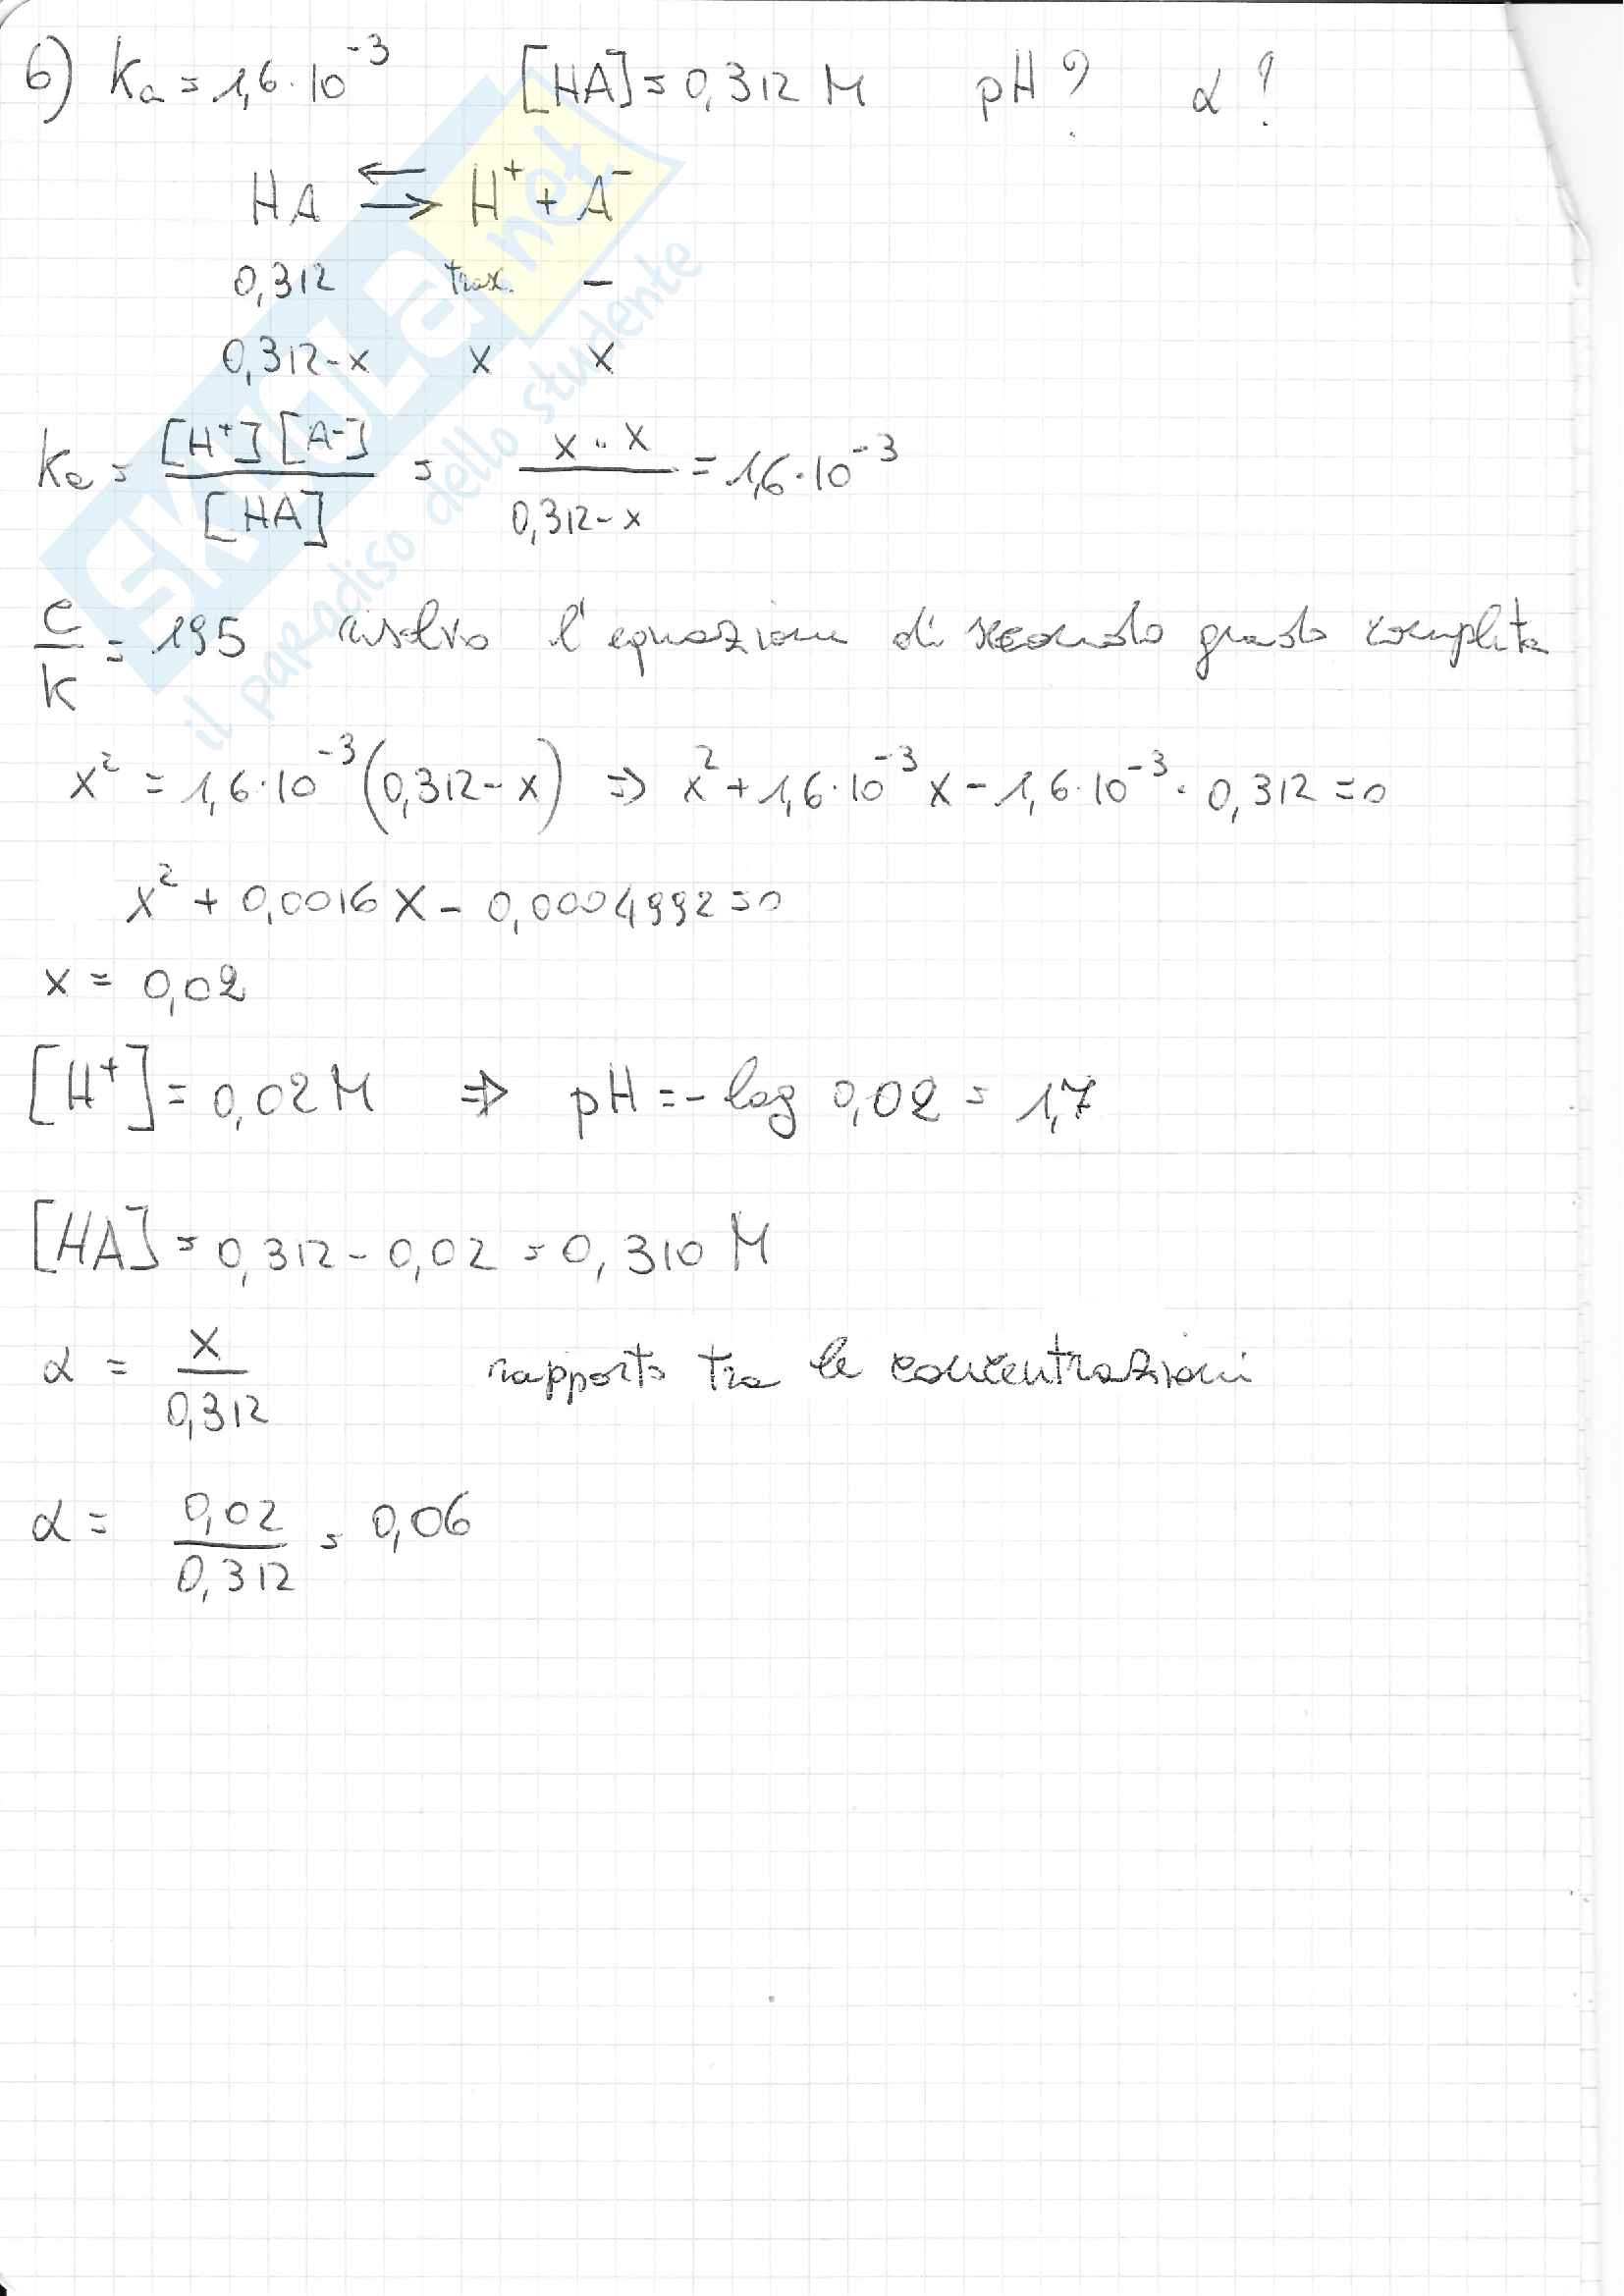 6) Ka = 1,6·10⁻³ [HA] = 0,312 M pH? α?
HA ⇄ H⁺ + A⁻
0,312 trasc. -
0,312-x x x
Ka = [H⁺][A⁻] / [HA] = x·x / 0,312-x = 1,6·10⁻³
c/k = 195 risolvo l'equazione di secondo grado completa
x² = 1,6·10⁻³(0,312-x) ⇒ x² + 1,6·10⁻³x - 1,6·10⁻³·0,312 = 0
x² + 0,0016x - 0,0004992 = 0
x = 0,02
[H⁺] = 0,02 M ⇒ pH = -log 0,02 = 1,7
[HA] = 0,312 - 0,02 = 0,310 M
α = x / 0,312 rapporto tra le concentrazioni
α = 0,02 / 0,312 = 0,06
SKUOLA.net
il paradiso dello studente